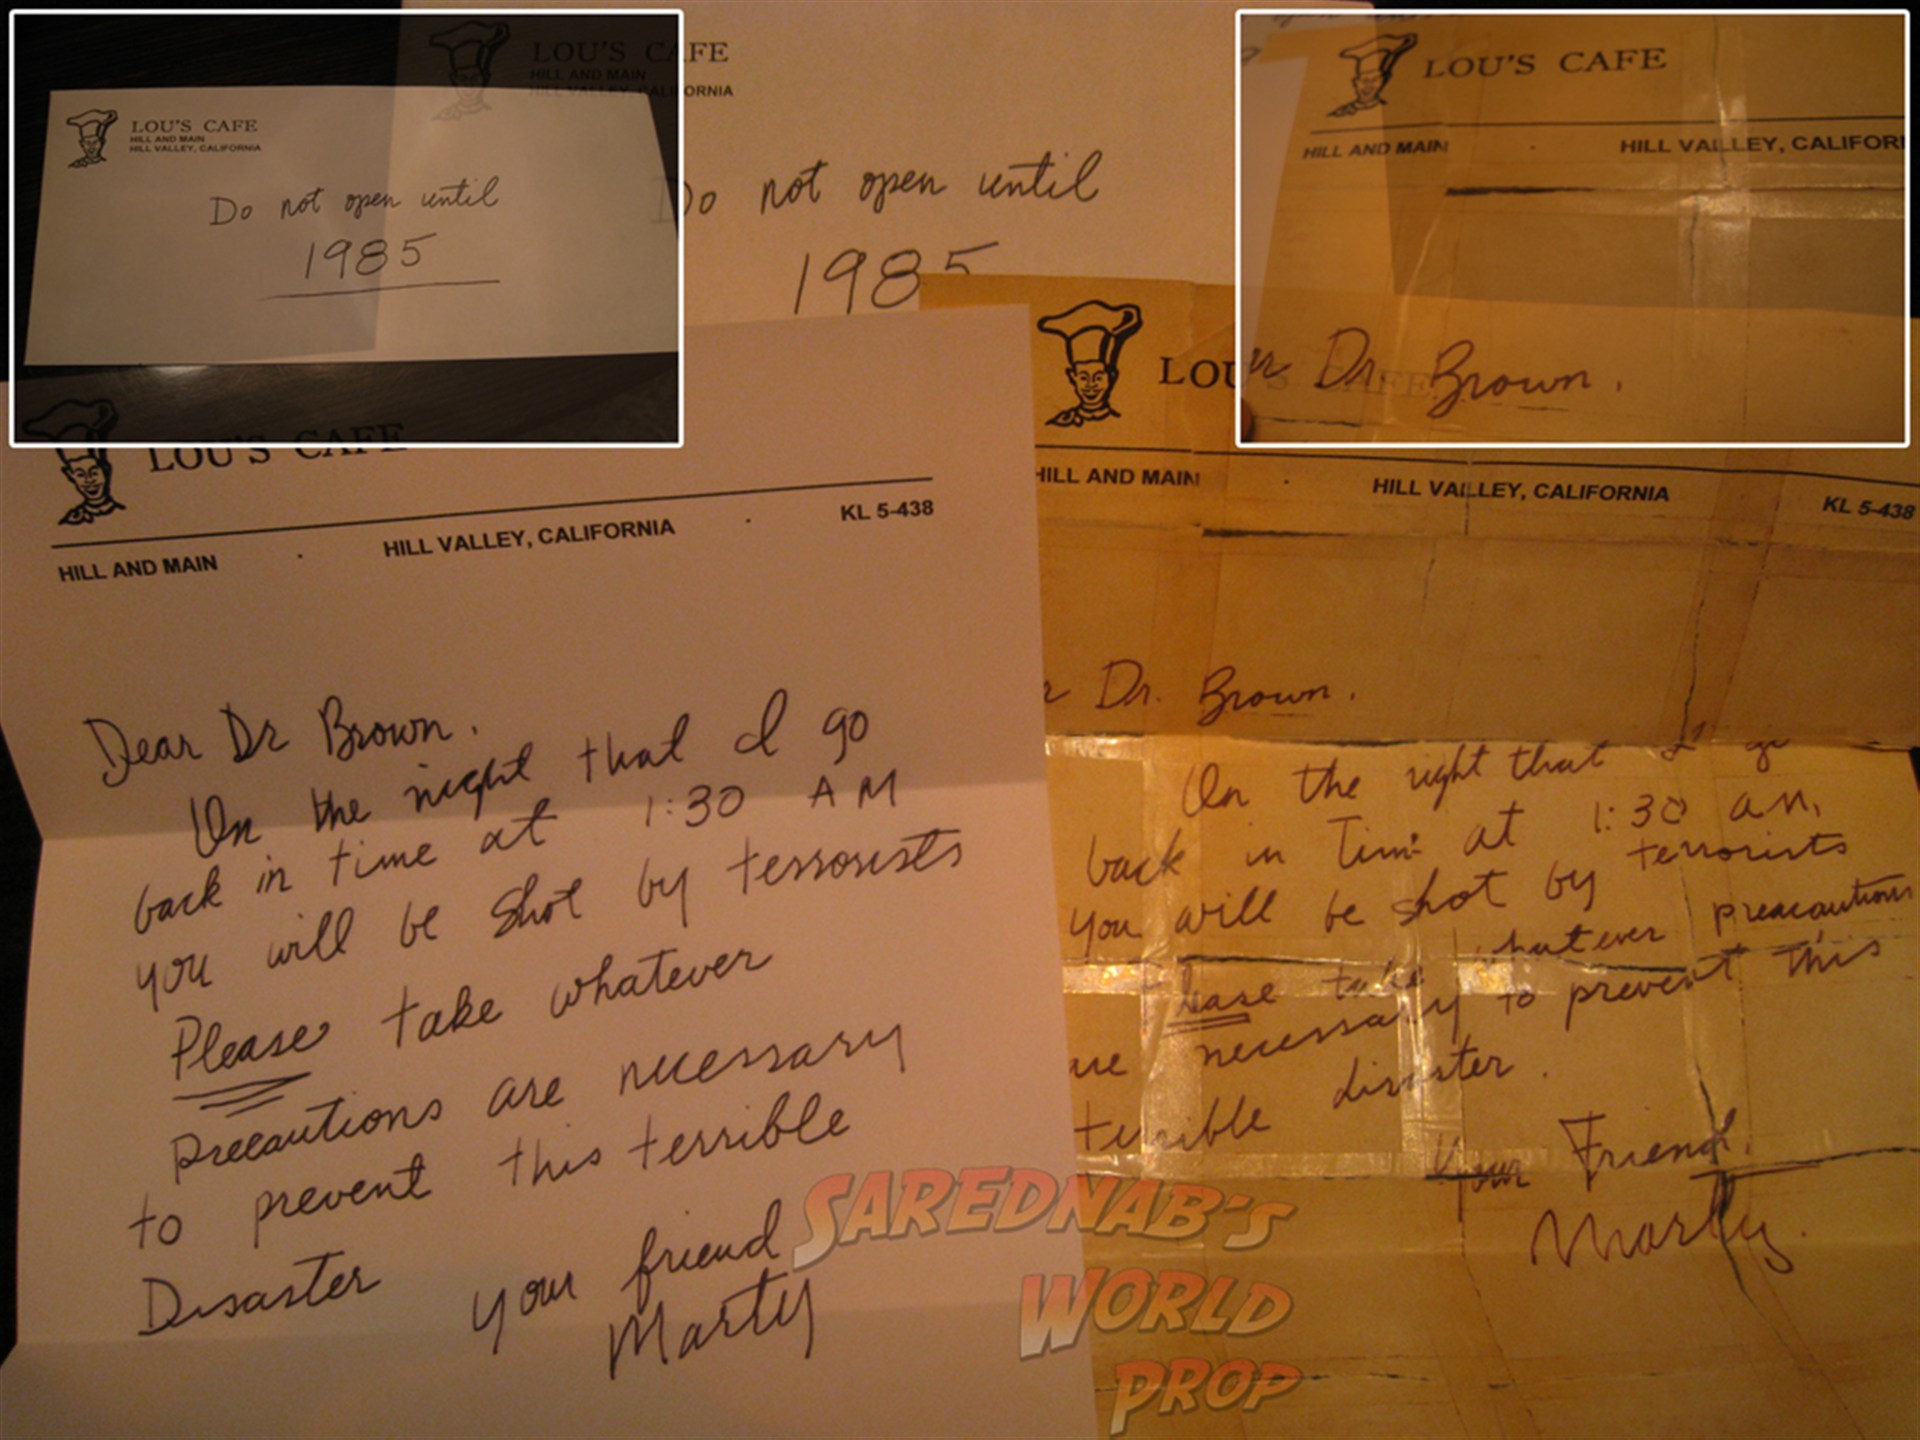 LOU'S CAFE
HILL AND MAIN
HILL VALLEY, CALIFORNIA
Do not open until
1985
LOU'S CAFE
HILL AND MAIN
HILL VALLEY, CALIFORNIA
Do not open until
1985
LOU'S CAFE
HILL AND MAIN . HILL VALLEY, CALIFOR
Dr. Brown.
LOU'S CAFE
HILL AND MAIN . HILL VALLEY, CALIFORNIA . KL 5-438
Dear Dr Brown.
On the night that I go
back in time at 1:30 AM
you will be shot by terrorists
Please take whatever
precautions are necessary
to prevent this terrible
Disaster
your friend
Marty
LOU'S CAFE
HILL AND MAIN . HILL VALLEY, CALIFORNIA KL 5-438
Dr. Brown.
On the night that I go
back in Time at 1:30 am,
you will be shot by terrorists
Please take whatever preacautions
are necessary to prevent this
terrible disaster.
Your Friend,
Marty.
SAREDNAB'S
WORLD
PROP